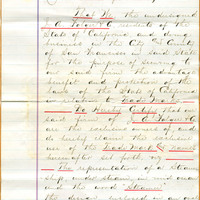 That We, the undersigned
J. A. Folger & Co residents of the
State of California and doing
business in the City & County
of San Francisco in said State
for the purpose of securing to
our said firm the advantage
benefit and protection of the
laws of the State of California
in relation to Trade Marks
Do Hereby Certify that our
said firm of J. A. Folger & Co.
are the exclusive owners of, and
do hereby claim the exclusive
use of the Trade Mark & Name
hereinafter set forth,
The representation of a Steam
ship, under steam, and
and the word "Steamer"
the design enclosed in an oval